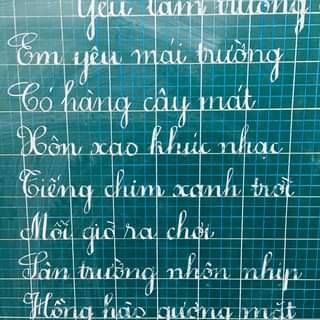 Yêu lắm trường
Em yêu mái trường
Có hàng cây mát
Xôn xao khúc nhạc
Tiếng chim xanh trời
Mỗi giờ ra chơi
Sân trường nhộn nhịp
Hồng hào gương mặt